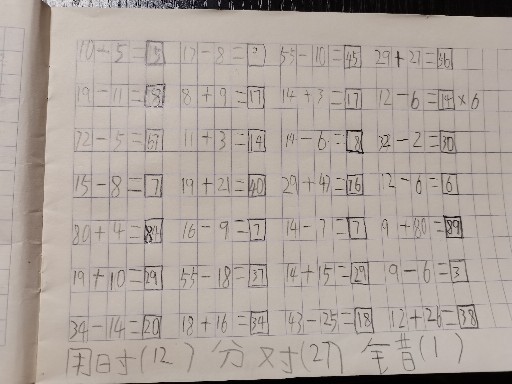 10-5=5 17-8=9 55-10=45 29+27=56
19-11=8 8+9=17 14+3=17 12-6=14×6
72-5=67 11+3=14 14-6=8 32-2=30
15-8=7 19+21=40 29+47=76 12-6=6
80+4=84 16-9=7 14-7=7 9+80=89
19+10=29 55-18=37 14+15=29 9-6=3
34-14=20 18+16=34 43-25=18 12+26=38
用时(12) 分 对寸(27) 错(1)